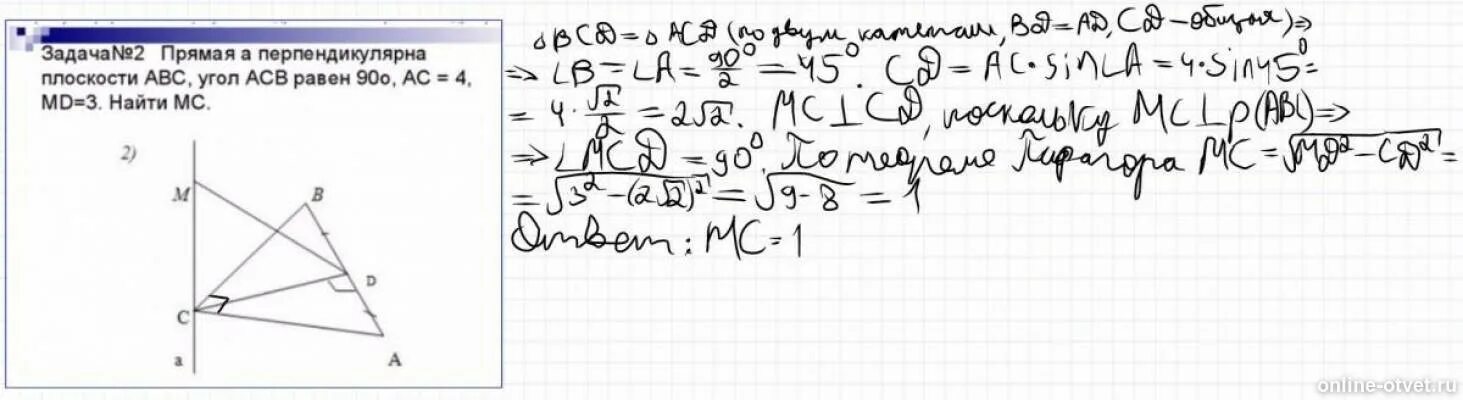 Задача№2 Прямая а перпендикулярна
плоскости АВС, угол АСВ равен 90о, АС = 4,
MD=3. Найти МС.
2)
M
B
D
C
A
a
△BCD = △ACD (по двум катетам, BD = AD, CD – общая) ⇒
⇒ ∠B = ∠A = 90°/2 = 45°. CD = AC · sin∠A = 4 · sin45° =
= 4 · √2/2 = 2√2. MC ⊥ CD, поскольку MC ⊥ p(ABC) ⇒
⇒ ∠MCD = 90°. По теореме Пифагора MC = √MD² – CD² =
= √3² – (2√2)² = √9 – 8 = 1
Ответ: MC = 1
online-otvet.ru